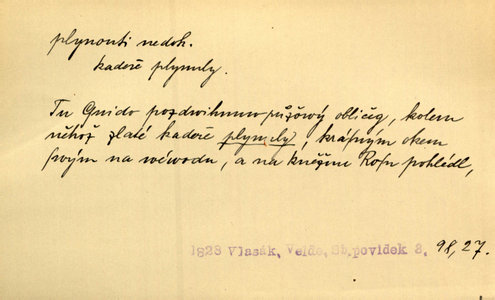 plynouti nedok.
kadeře plynuly.
Tu Guido pozdwihnuw růžowý obličeg, kolem
něhož zlaté kadeře plynuly, kráſným okem
ſwým na wéwodu, a na kněžnu Roſu pohlédl,
1823 Vlasák, Velde, Sb.povídek 3. 98, 27.